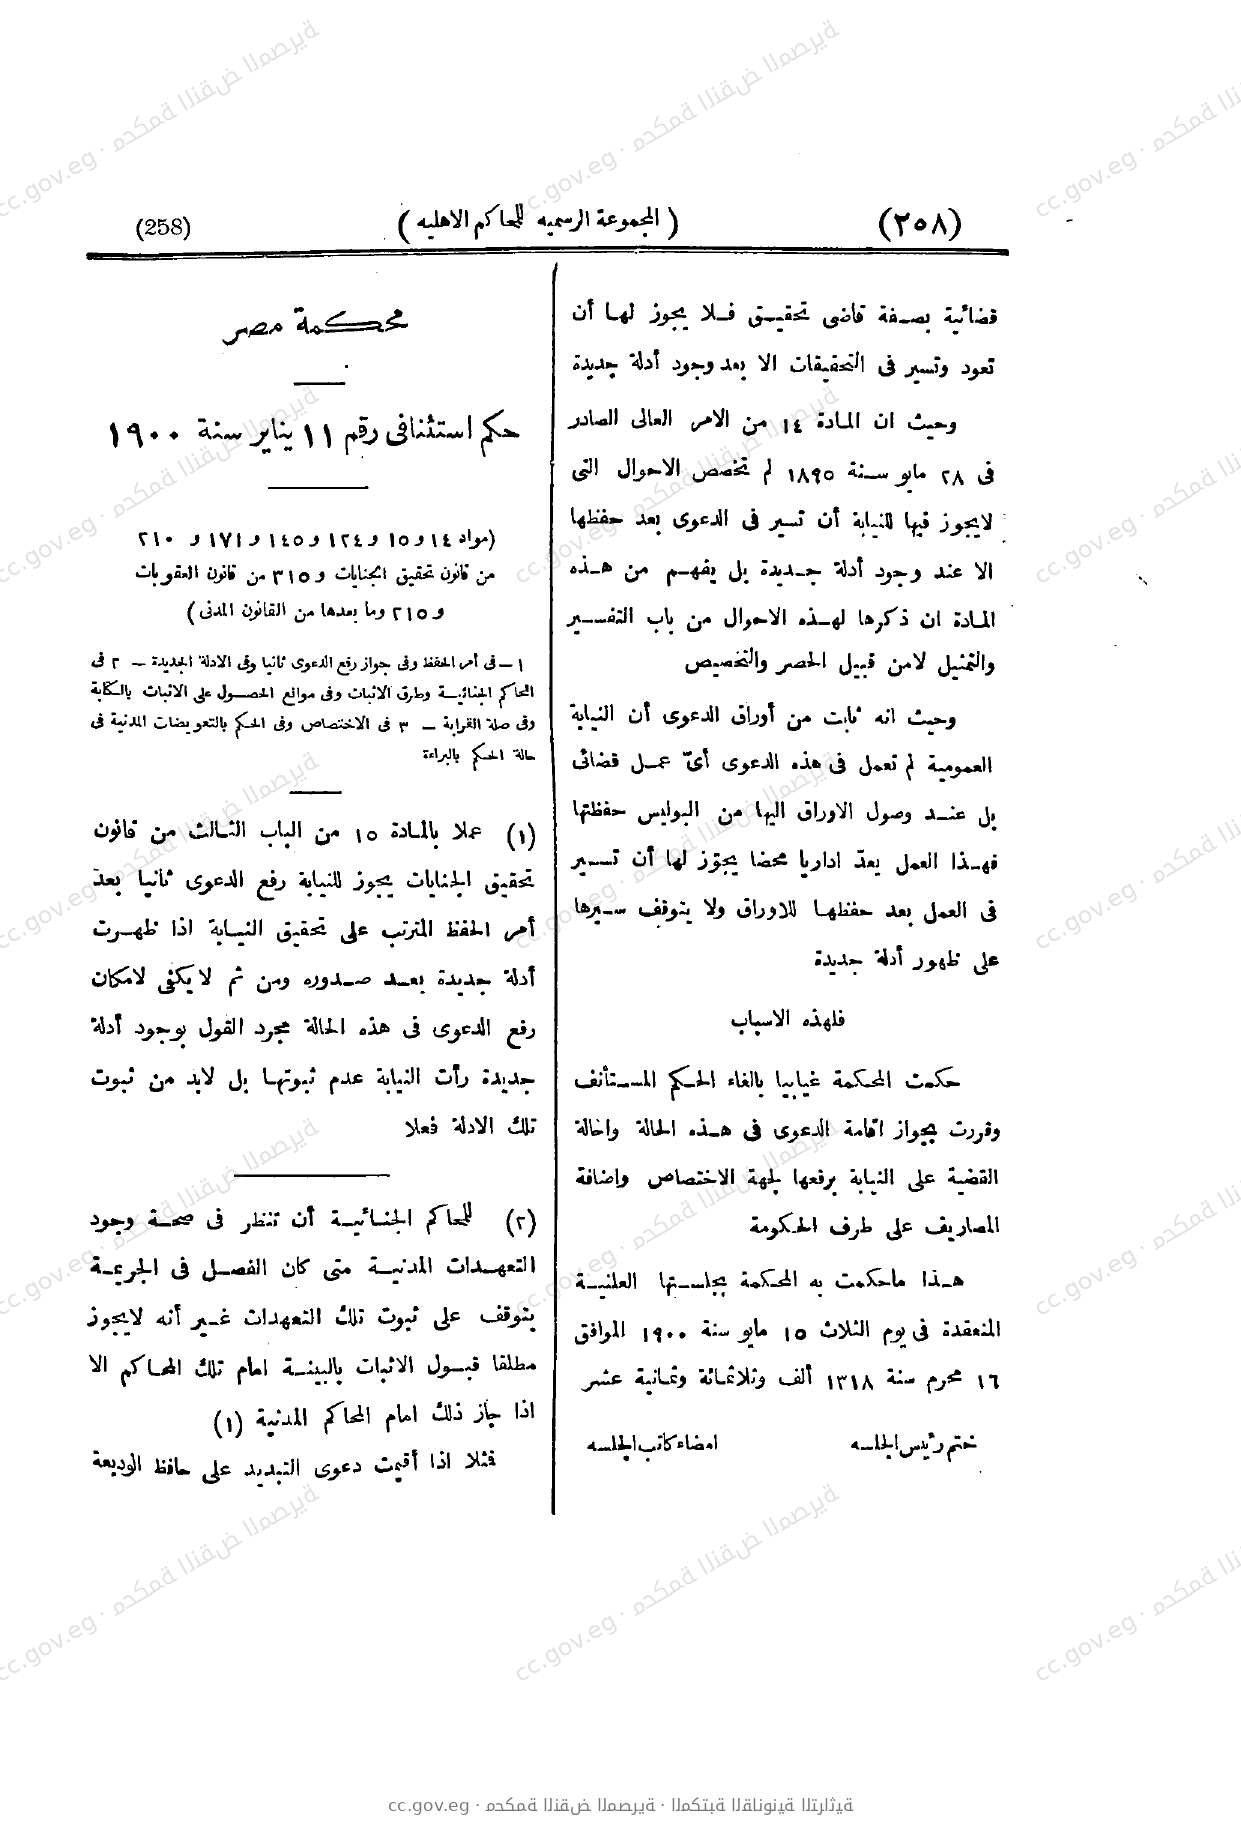 (٢٥٨)
( المجموعة الرسميه للمحاكم الاهليه )
(258)
قضائية بصفة قاضى تحقيق فلا يجوز لها أن
تعود وتسير فى التحقيقات الا بعد وجود أدلة جديدة
وحيث ان المادة ١٤ من الامر العالى الصادر
فى ٢٨ مايو سنة ١٨٩٥ لم تخصص الاحوال التى
لايجوز فيها للنيابة أن تسير فى الدعوى بعد حفظها
الا عند وجود أدلة جديدة بل يفهم من هذه
المادة ان ذكرها لهذه الاحوال من باب التفسير
والتمثيل لامن قبيل الحصر والتخصيص
وحيث انه ثابت من أوراق الدعوى أن النيابة
العمومية لم تعمل فى هذه الدعوى أىّ عمل قضائى
بل عند وصول الاوراق اليها من البوليس حفظتها
فهذا العمل يعدّ اداريا محضا يجوّز لها أن تسير
فى العمل بعد حفظها للاوراق ولا يتوقف سيرها
على ظهور أدلة جديدة
فلهذه الاسباب
حكمت المحكمة غيابيا بالغاء الحكم المستأنف
وقررت بجواز اقامة الدعوى فى هذه الحالة واحالة
القضية على النيابة برفعها لجهة الاختصاص واضافة
المصاريف على طرف الحكومة
هذا ماحكمت به المحكمة بجلستها العلنية
المنعقدة فى يوم الثلاث ١٥ مايو سنة ١٩٠٠ الموافق
١٦ محرم سنة ١٣١٨ ألف وثلاثمائة وثمانية عشر
ختم رئيس الجلسه امضاء كاتب الجلسه
محكمة مصر
حكم استئنافى رقم ١١ يناير سنة ١٩٠٠
(مواد ١٤ و ١٥ و ١٢٤ و ١٤٥ و ١٧١ و ٢١٠
من قانون تحقيق الجنايات و ٣١٥ من قانون العقوبات
و ٢١٥ وما بعدها من القانون المدنى)
١ – فى أمر الحفظ وفى جواز رفع الدعوى ثانيا وفى الادلة الجديدة – ٢ فى
المحاكم الجنائية وطرق الاثبات وفى موانع الحصول على الاثبات بالكتابة
وفى صلة القرابة – ٣ فى الاختصاص وفى الحكم بالتعويضات المدنية فى
حالة الحكم بالبراءة
(١) عملا بالمادة ١٥ من الباب الثالث من قانون
تحقيق الجنايات يجوز للنيابة رفع الدعوى ثانيا بعد
أمر الحفظ المترتب على تحقيق النيابة اذا ظهرت
أدلة جديدة بعد صدوره ومن ثم لا يكفى لامكان
رفع الدعوى فى هذه الحالة مجرد القول بوجود أدلة
جديدة رأت النيابة عدم ثبوتها بل لابد من ثبوت
تلك الادلة فعلا
(٢) للمحاكم الجنائية أن تنظر فى صحة وجود
التعهدات المدنية متى كان الفصل فى الجريمة
يتوقف على ثبوت تلك التعهدات غير أنه لايجوز
مطلقا قبول الاثبات بالبينة امام تلك المحاكم الا
اذا جاز ذلك امام المحاكم المدنية (١)
فمثلا اذا أقيمت دعوى التبديد على حافظ الوديعة
cc.gov.eg · محكمة النقض المصرية · المكتبة القانونية التراثية